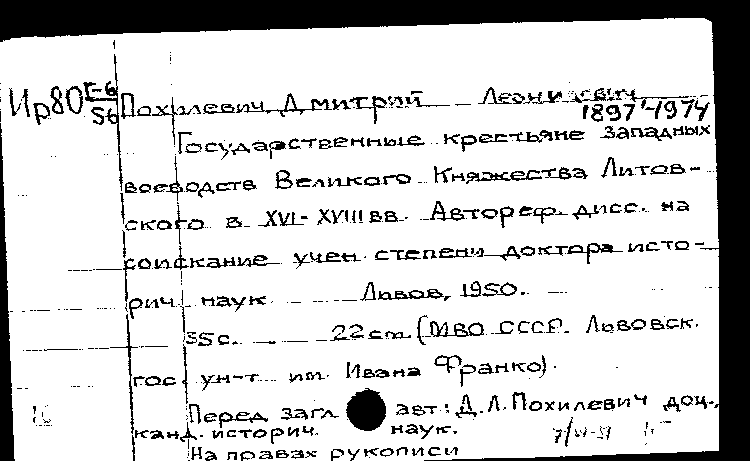 Ир80 Г-6/56 Похилевич, Дмитрий
1897-1974
Государственные крестьяне западных
воеводств Великого Княжества Литов-
ского в XVI-XVIII вв. Автореф. дисс. на
соискание учен. степени доктора исто-
рич. наук Львов, 1950.
35 с. 22 cm. (МВО СССР. Львовск.
гос. ун-т им. Ивана Франко).
Перед загл. авт.: Д.Л. Похилевич доц.,
канд. историч. наук.
На правах рукописи